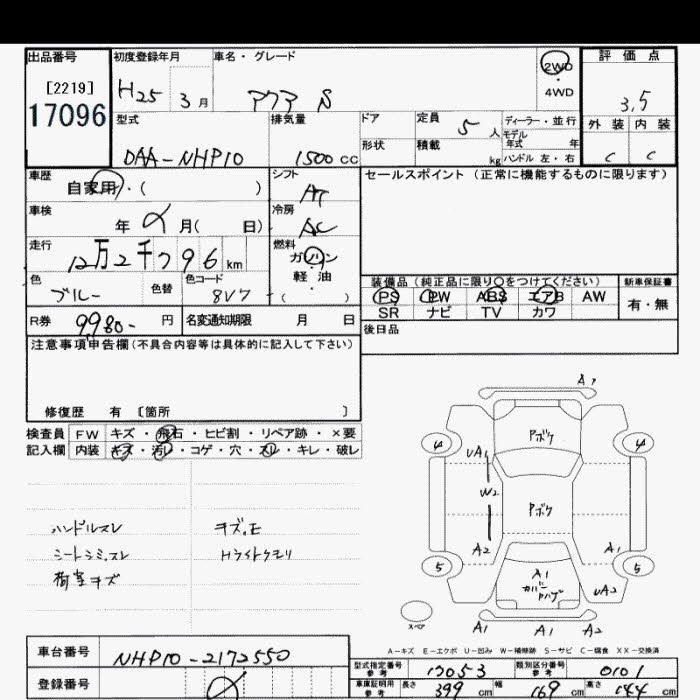 出品番号 初度登録年月 車名・グレード 2WD 評価点
[2219] H25 3月 アクア S ・ 4WD 3.5
17096 型式 排気量 ドア 定員 5人 ディーラー・並行 外装 内装
モデル年式 年
DAA-NHP10 1500cc 形状 積載 kg ハンドル 左・右 C C
車歴 自家用・( ) シフト AT セールスポイント (正常に機能するものに限ります)
車検 年 月( 日) 冷房 AC
走行 12万2千796km 燃料 ガソリン・軽・油 ( )
色 ブルー 色替 色コード 8V7
装備品 (純正品に限り○をつけてください) 新車保証書
PS PW ABS エアB AW 有・無
SR ナビ TV カワ
R券 9980- 円 名変通知期限 月 日 後日品
注意事項申告欄(不具合内容等は具体的に記入して下さい)
修復歴 有 〔箇所 〕
検査員 FW キズ・飛石・ヒビ割・リペア跡・×要
記入欄 内装 キズ・汚レ・コゲ・穴・スレ・キレ・破レ
ハンドルスレ キズ.モ
シートシミ.スレ Hライトクモリ
荷室キズ
A7
4 Aボケ 4
UA1
W2
Aボケ
A2 A1
5 A1 5
UA2
スペア A1 A1 A2
A-キズ E-エクボ U-凹み W-補修跡 S-サビ C-腐食 XX-交換済
車台番号 NHP10-2172550
型式指定番号 参考 17053 類別区分番号 参考 0101
登録番号 車庫証明用 参考 長さ 399 cm 幅 169 cm 高さ 144 cm